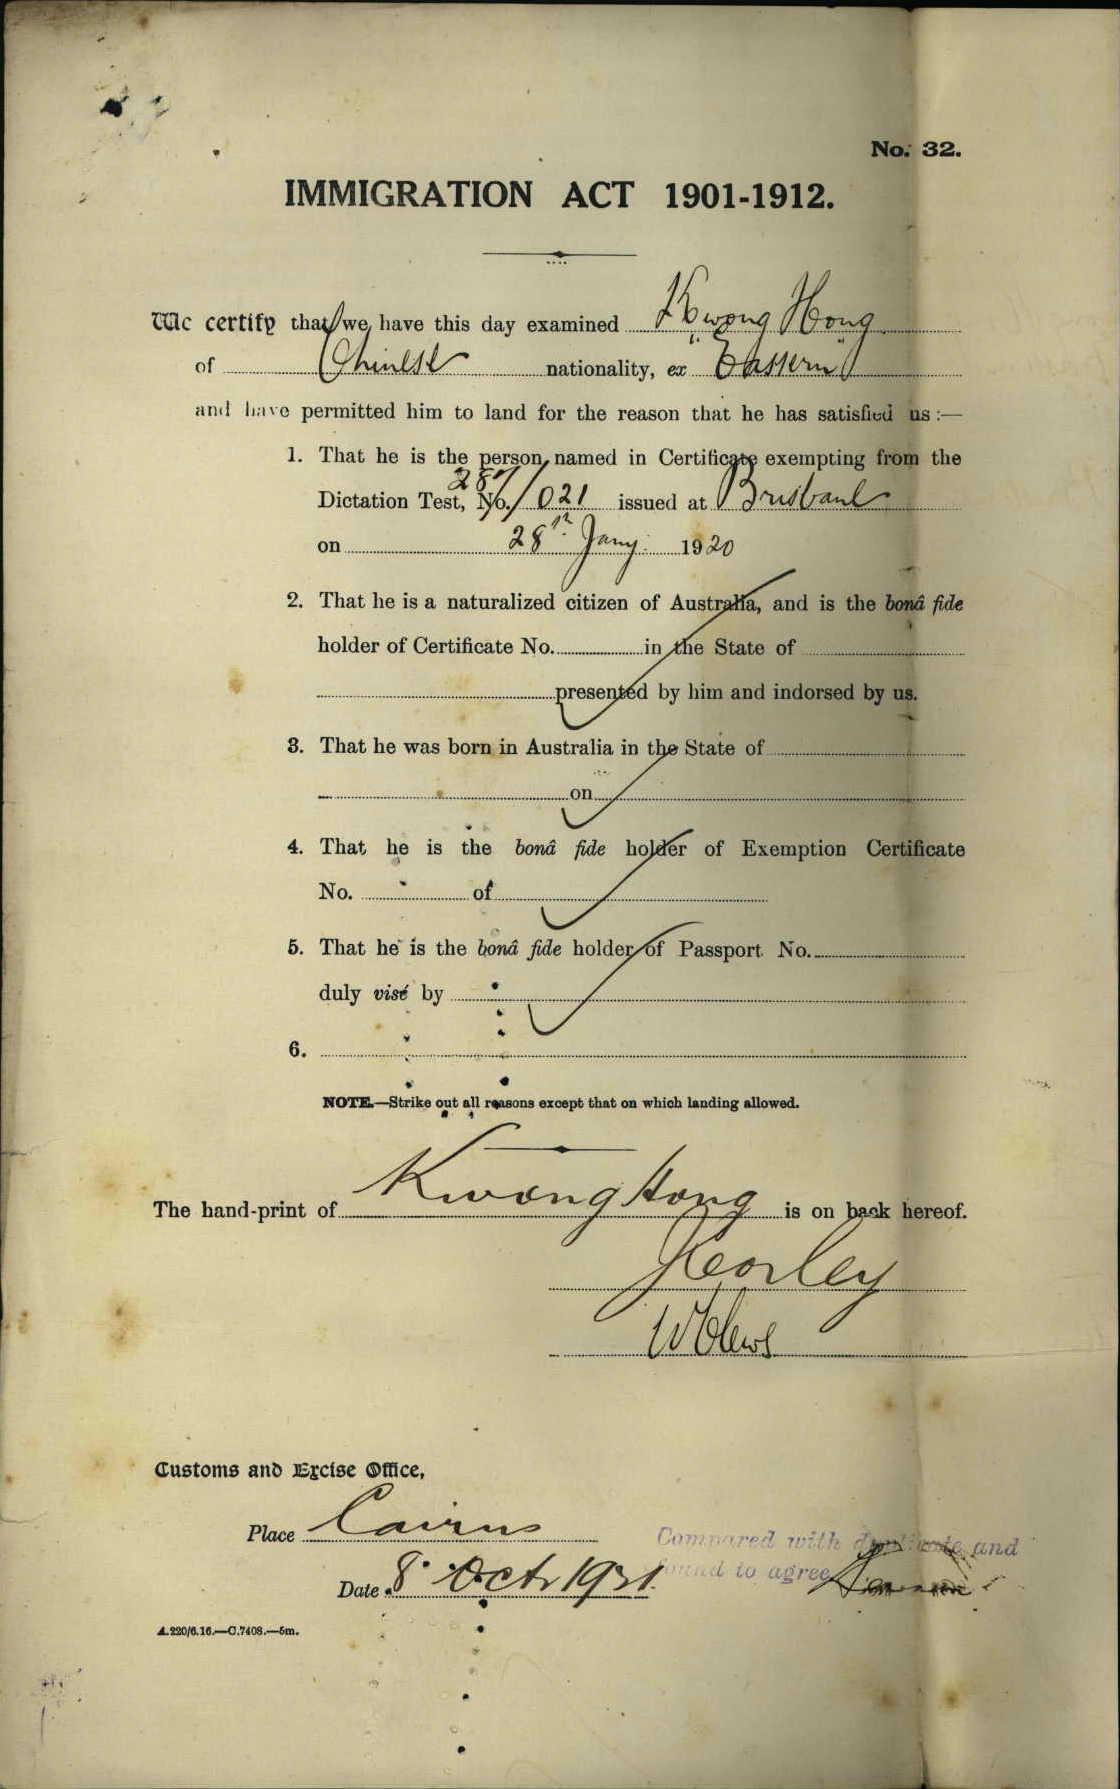 No. 32.
IMMIGRATION ACT 1901-1912.
We certify that we have this day examined Kwong Hong
of Chinese nationality, ex "Eastern"
and have permitted him to land for the reason that he has satisfied us :—
1. That he is the person named in Certificate exempting from the
Dictation Test, No. 287/021 issued at Brisbane
on 28th Jany. 1920
2. That he is a naturalized citizen of Australia, and is the bonâ fide
holder of Certificate No. in the State of
presented by him and indorsed by us.
3. That he was born in Australia in the State of
on
4. That he is the bonâ fide holder of Exemption Certificate
No. of
5. That he is the bonâ fide holder of Passport No.
duly visé by
6.
NOTE.—Strike out all reasons except that on which landing allowed.
The hand-print of Kwong Hong is on back hereof.
Customs and Excise Office,
Place Cairns
Date 8 Oct 1921.
Compared with duplicate and
found to agree
A.220/6.16.—C.7408.—5m.